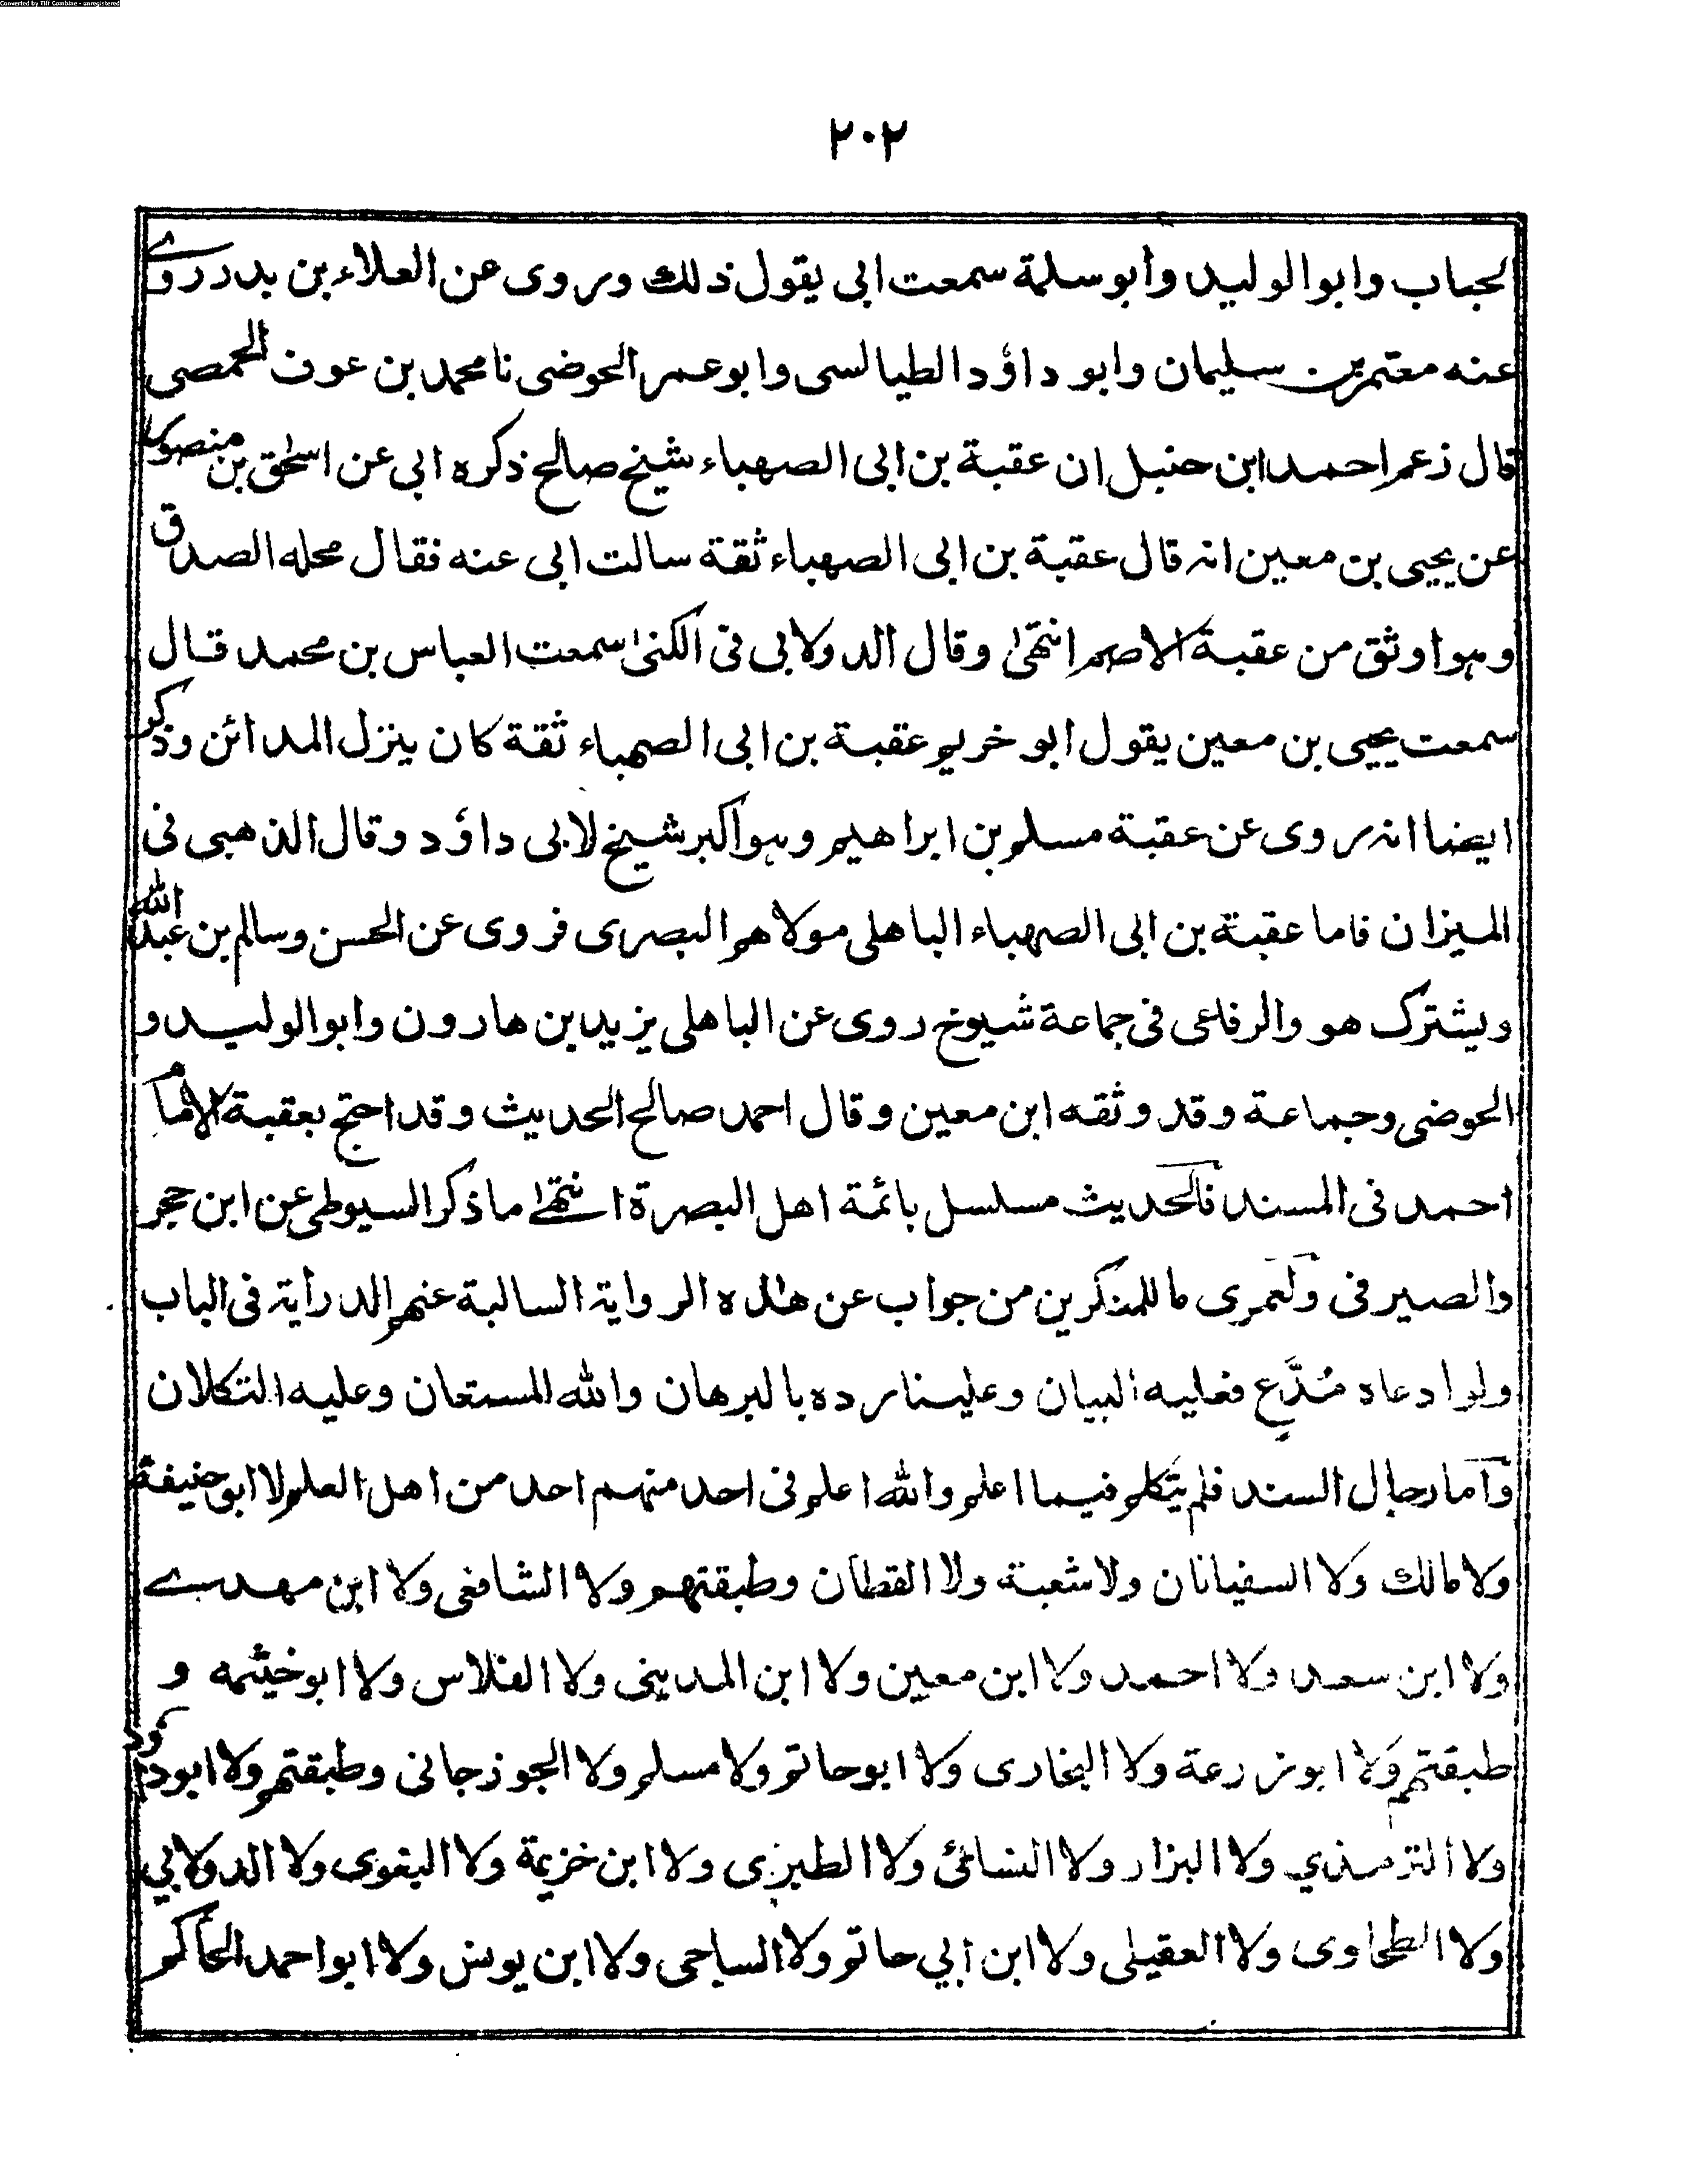 Converted by Tiff Combine - unregistered
٢٠٢
الحباب وابو الوليد وابو سلمة سمعت ابى يقول ذلك وروى عن العلاء بن بدر روى
عنه معتمر بن سليمان وابو داؤد الطيالسى وابو عمر الحوضى نا محمد بن عوف الحمصى
قال زعم احمد ابن حنبل ان عقبة بن ابى الصهباء شيخ صالح ذكره ابى عن اسحٰق بن منصور
عن يحيى بن معين انه قال عقبة بن ابى الصهباء ثقة سالت ابى عنه فقال محله الصدق
وهو اوثق من عقبة الاصم انتهىٰ وقال الدولابى فى الكنىٰ سمعت العباس بن محمد قال
سمعت يحيى بن معين يقول ابو خريم عقبة بن ابى الصهباء ثقة كان ينزل المدائن وذكر
ايضا انه روى عن عقبة مسلم بن ابراهيم وهو اكبر شيخ لابى داؤد وقال الذهبى فى
الميزان فاما عقبة بن ابى الصهباء الباهلى مولاهم البصرى فروى عن الحسن وسالم بن عبد الله
ويشترك هو والرفاعى فى جماعة شيوخ روى عن الباهلى يزيد بن هارون وابو الوليد و
الحوضى وجماعة وقد وثقه ابن معين وقال احمد صالح الحديث وقد احتج بعقبة الامام
احمد فى المسند فالحديث مسلسل بائمة اهل البصرة انتهىٰ ما ذكر السيوطى عن ابن حجر
والصيرفى ولعمرى ما للمنكرين من جواب عن هٰذه الرواية السالبة عنهم الدراية فى الباب
ولو ادعاه مُدَّعٍ فعليه البيان وعلينا رده بالبرهان والله المستعان وعليه التكلان
وآما رجال السند فلم يتكلم فيما اعلم والله اعلم فى احد منهم احد من اهل العلم لا ابو حنيفة
ولا مالك ولا السفيانان ولا شعبة ولا القطان وطبقتهم ولا الشافعى ولا ابن مهدى
ولا ابن سعد ولا احمد ولا ابن معين ولا ابن المدينى ولا الفلاس ولا ابو خيثمه و
طبقتهم ولا ابو زرعة ولا البخارى ولا ابو حاتم ولا مسلم ولا الجوزجانى وطبقتهم ولا ابو داؤد
ولا الترمذي ولا البزار ولا النسائى ولا الطبرى ولا ابن خزيمة ولا البغوى ولا الدولابي
ولا الطحاوى ولا العقيلى ولا ابن ابي حاتم ولا الساجى ولا ابن يونس ولا ابو احمد الحاكم